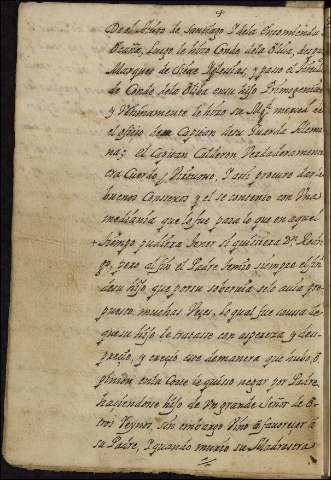 De el Avito de Santiago Y dela Encomienda
Ocaña, Luego le hizo Conde dela Oliba, despu
Marques de Siete Yglesias, y paso el titulo
de Conde dela Oliba en su hijo Primogenito
y Vltimamente le hizo su Mag.d merced de
el oficio de Capitan de su Guarda Alema
na; el Capitan Calderon Verdaderamente
era Cuerdo y Virtuoso, Y assi procuro dar le
buenos Consexos y el se contento con Vna
medianía que lo fue para lo que en aquel
tiempo pudiera tener si quisiera Dn. Rodri
go, pero al fin el Padre temio siempre el fin
de su hijo, que por su soberuia se lo auia pro
puesto muchas Veçes, lo qual fue causa de
que su hijo le tratasse con aspereza y des
precio, y crecio de manera que hubo O
pinion en la Corte le quiso negar por Padre
haciendose hijo de Vn grande Señor de Es
tos Reynos, sin embargo Vino a fauorecer á
su Padre, Y quando murio su Madrastra